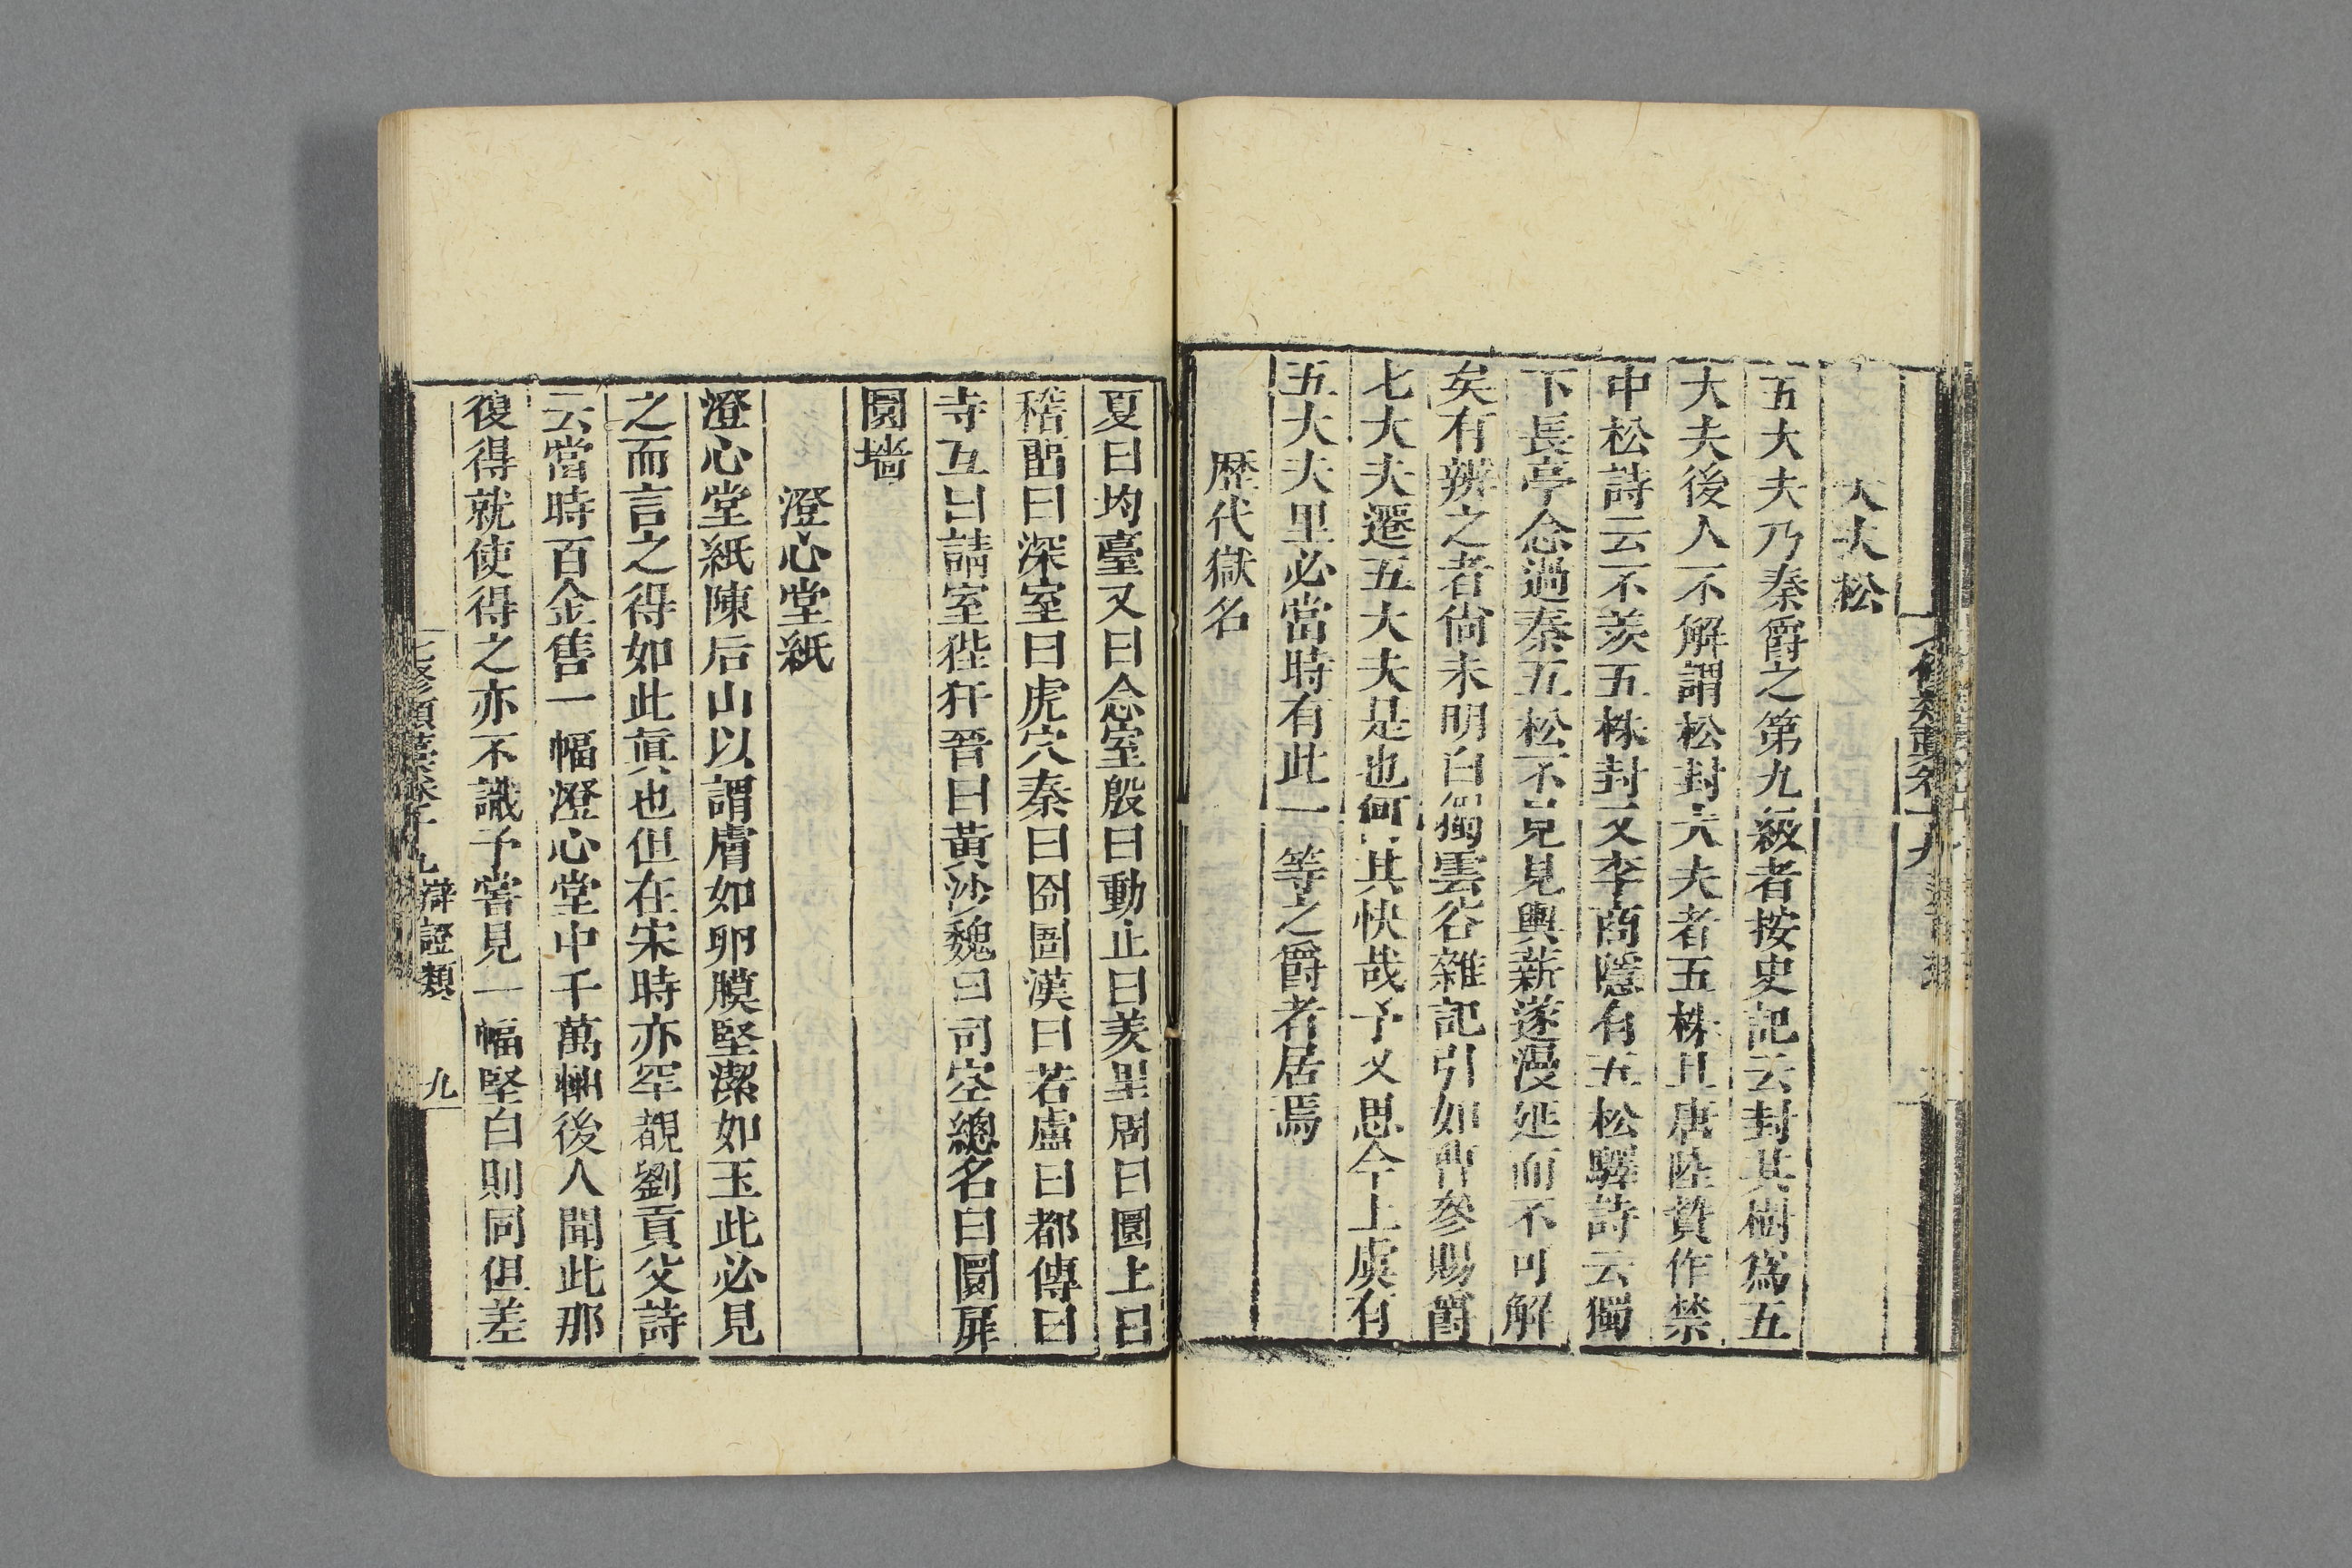 大夫松
五大夫乃秦爵之第九級者按史記云封其樹爲五
大夫後人不解謂松封大夫者五株且唐陸贄作禁
中松詩云不羨五株封又李商隱有五松驛詩云獨
下長亭念過秦五松不見見輿薪遂漫延而不可解
矣有辨之者尙未明白獨雲谷雜記引如曹參賜爵
七大夫遷五大夫是也何其快哉予又思今上虞有
五大夫里必當時有此一等之爵者居焉
歷代獄名
夏曰均臺又曰念室殷曰動止曰羑里周曰圜土曰
稽畱曰深室曰虎穴秦曰囹圄漢曰若盧曰都傳曰
寺互曰請室狴犴晉曰黃沙魏曰司空總名曰圜扉
圜墻
澄心堂紙
澄心堂紙陳后山以謂膚如卵膜堅潔如玉此必見
之而言之得如此眞也但在宋時亦罕覩劉貢父詩
云當時百金售一幅澄心堂中千萬軸後人聞此那
復得就使得之亦不識予嘗見一幅堅白則同但差
七修類藁卷十九 辯證類 九